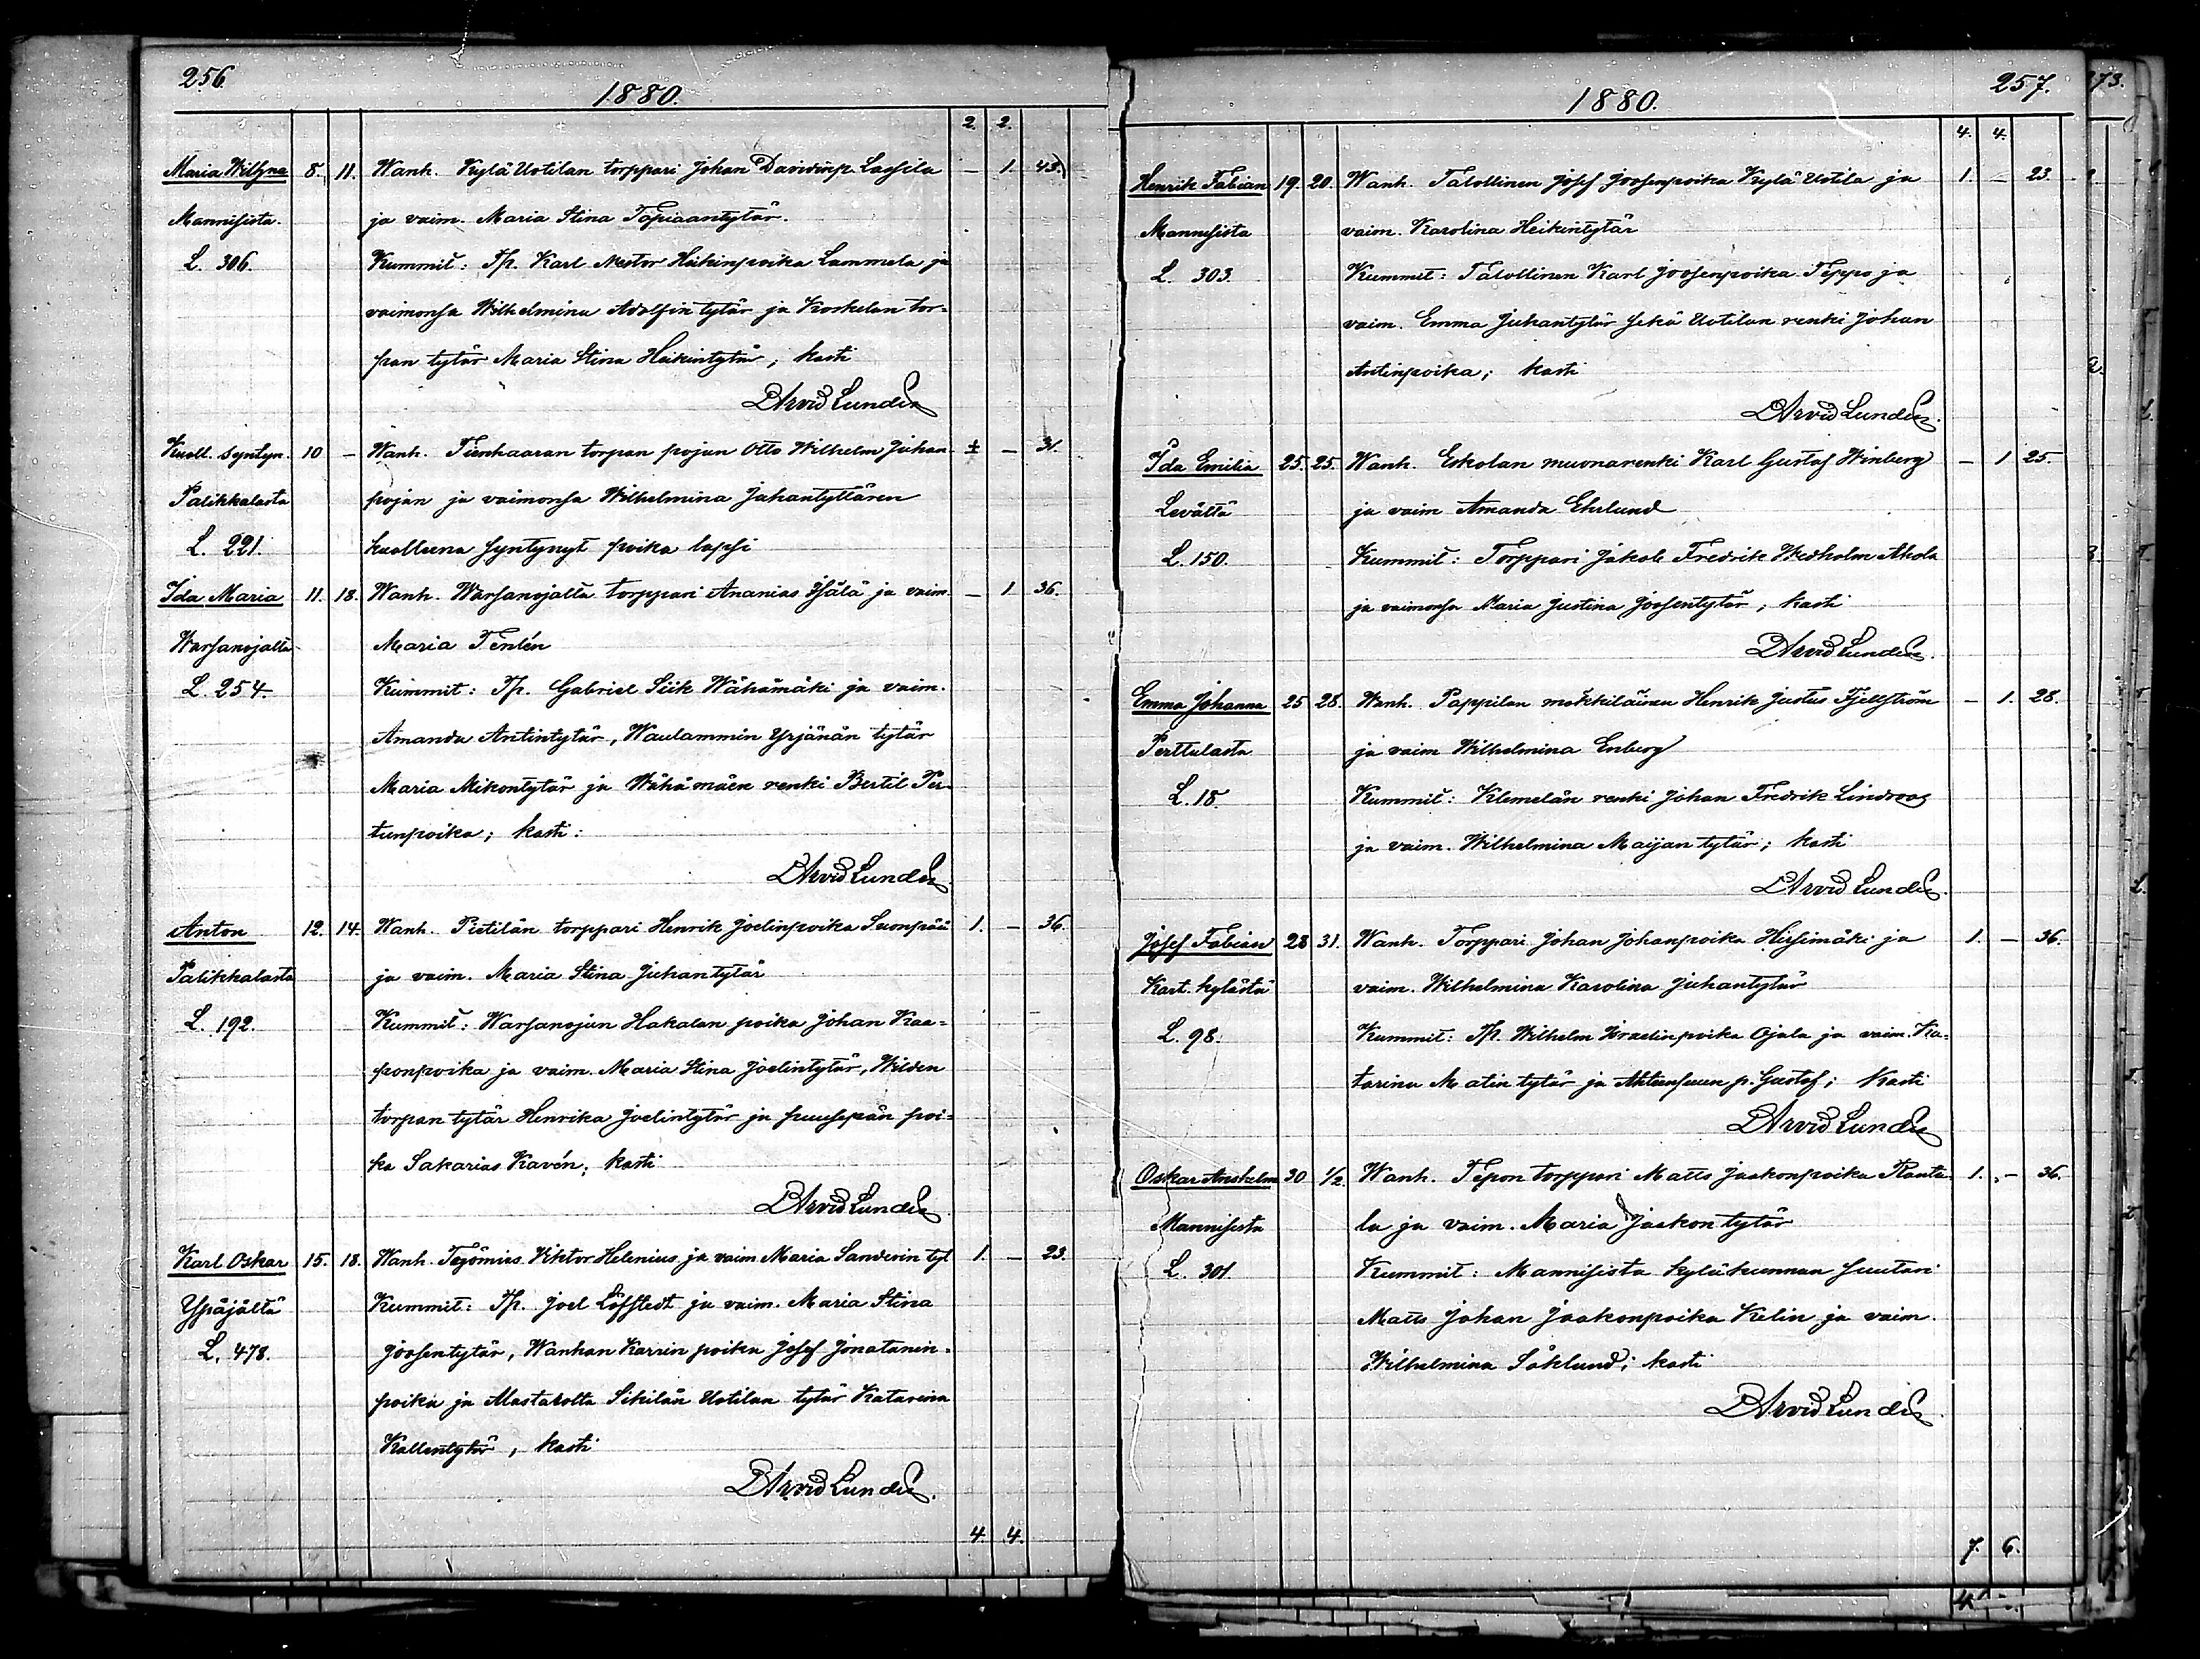 256.
1880.
2. 2.
Maria Wilhna 8. 11. Wanh. Kylä Uotilan torppari Johan Davidinp. Lassila — 1. 43.
Mannisista. ja vaim. Maria Stina Tapiaantytär.
L. 306. Kummit: Tp. Karl Nestor Heikinpoika Lammela ja
vaimonsa Wilhelmina Adolfin tytär ja Koskelan tor=
pan tytär Maria Stina Heikintytär; kasti
D Arvid Lundén
Kuoll. syntyn. 10 — Wanh. Tienhaaran torpan pojan Otto Wilhelm Juhan ± — 31.
Palikkalasta pojan ja vaimonsa Wilhelmina Juhantyttären
L. 221. kuolleena syntynyt poika lapsi
Ida Maria 11. 18. Wanh. Warsanojalta torppari Ananias Isälä ja vaim. — 1 36.
Warsanojalta Maria Tenlén
L. 254. Kummit: Tp. Gabriel Siik Wähämäki ja vaim.
Amanda Antintytär, Waulammin Yrjänän tytär
Maria Mikontytär ja Wähämäen renki Bertil Pie-
tunpoika; kasti:
D Arvid Lundén
Anton 12. 14. Wanh. Pietilän torppari Henrik Joelinpoika Suonpää 1. — 36.
Palikkalasta ja vaim. Maria Stina Juhantytär
L. 192. Kummit: Warsanojan Hakalan poika Johan Kaa=
ponpoika ja vaim. Maria Stina Joelintytär, Wilden
torpan tytär Henrika Joelintytär ja puusepän poi=
ka Sakarias Kavén; kasti
D Arvid Lundén
Karl Oskar 15. 18. Wanh. Työmies Viktor Helenius ja vaim Maria Sanderin tyt 1. — 23.
Ypäjältä Kummit: Tp. Joel Löfstedt ja vaim. Maria Stina
L. 478. Joosentytär, Wanhan Karrin poika Josef Jonatanin-
poika ja Mustatolta Sikilän Uotilan tytär Katarina
Kallentytär, kasti
D Arvid Lundén.
4. 4.
257.
1880.
4. 4.
Henrik Fabian 19. 20. Wanh. Talollinen Josef Joosenpoika Kylä Uotila ja 1. — 23.
Mannisista vaim. Karolina Heikintytär
L. 303. Kummit: Talollinen Karl Joosenpoika Teppo ja
vaim. Emma Juhantytär sekä Uotilan renki Johan
Antinpoika; kasti
D Arvid Lundén.
Ida Emilia 25. 25. Wanh. Eskolan muonarenki Karl Gustaf Winberg — 1 25.
Levältä ja vaim Amanda Ehrlund
L. 150. Kummit: Torppari Jakob Fredrik Wedholm Ahola
ja vaimonsa Maria Justina Joosentytär; kasti
D Arvid Lundén.
Emma Johanna 25 28. Wanh. Pappilan mökkiläinen Henrik Justus Fjellström — 1. 28.
Perttulasta ja vaim Wilhelmina Enberg
L. 18. Kummit: Klemelän renki Johan Fredrik Lindroos
ja vaim. Wilhelmina Maijan tytär; kasti
D Arvid Lundén.
Josef Fabian 28 31. Wanh. Torppari Johan Johanpoika Hirsimäki ja 1. — 36.
Kart. kylästä vaim. Wilhelmina Karolina Juhantytär
L. 98. Kummit: Tp. Wilhelm Israelinpoika Ojala ja vaim. Ka-
tarina Matin tytär ja p. Gustaf; kasti
D Arvid Lundén
Oskar Anshelm 30 1/2. Wanh. Tepon torppari Matts Jaakonpoika Ranta- 1. — 36.
Mannisista la ja vaim. Maria Jaakon tytär
L. 301. Kummit: Mannisista kyläkunnan suutari
Matts Johan Jaakonpoika Kelin ja vaim.
Wilhelmina Säklund; kasti
D Arvid Lundén.
7. 6.
273.